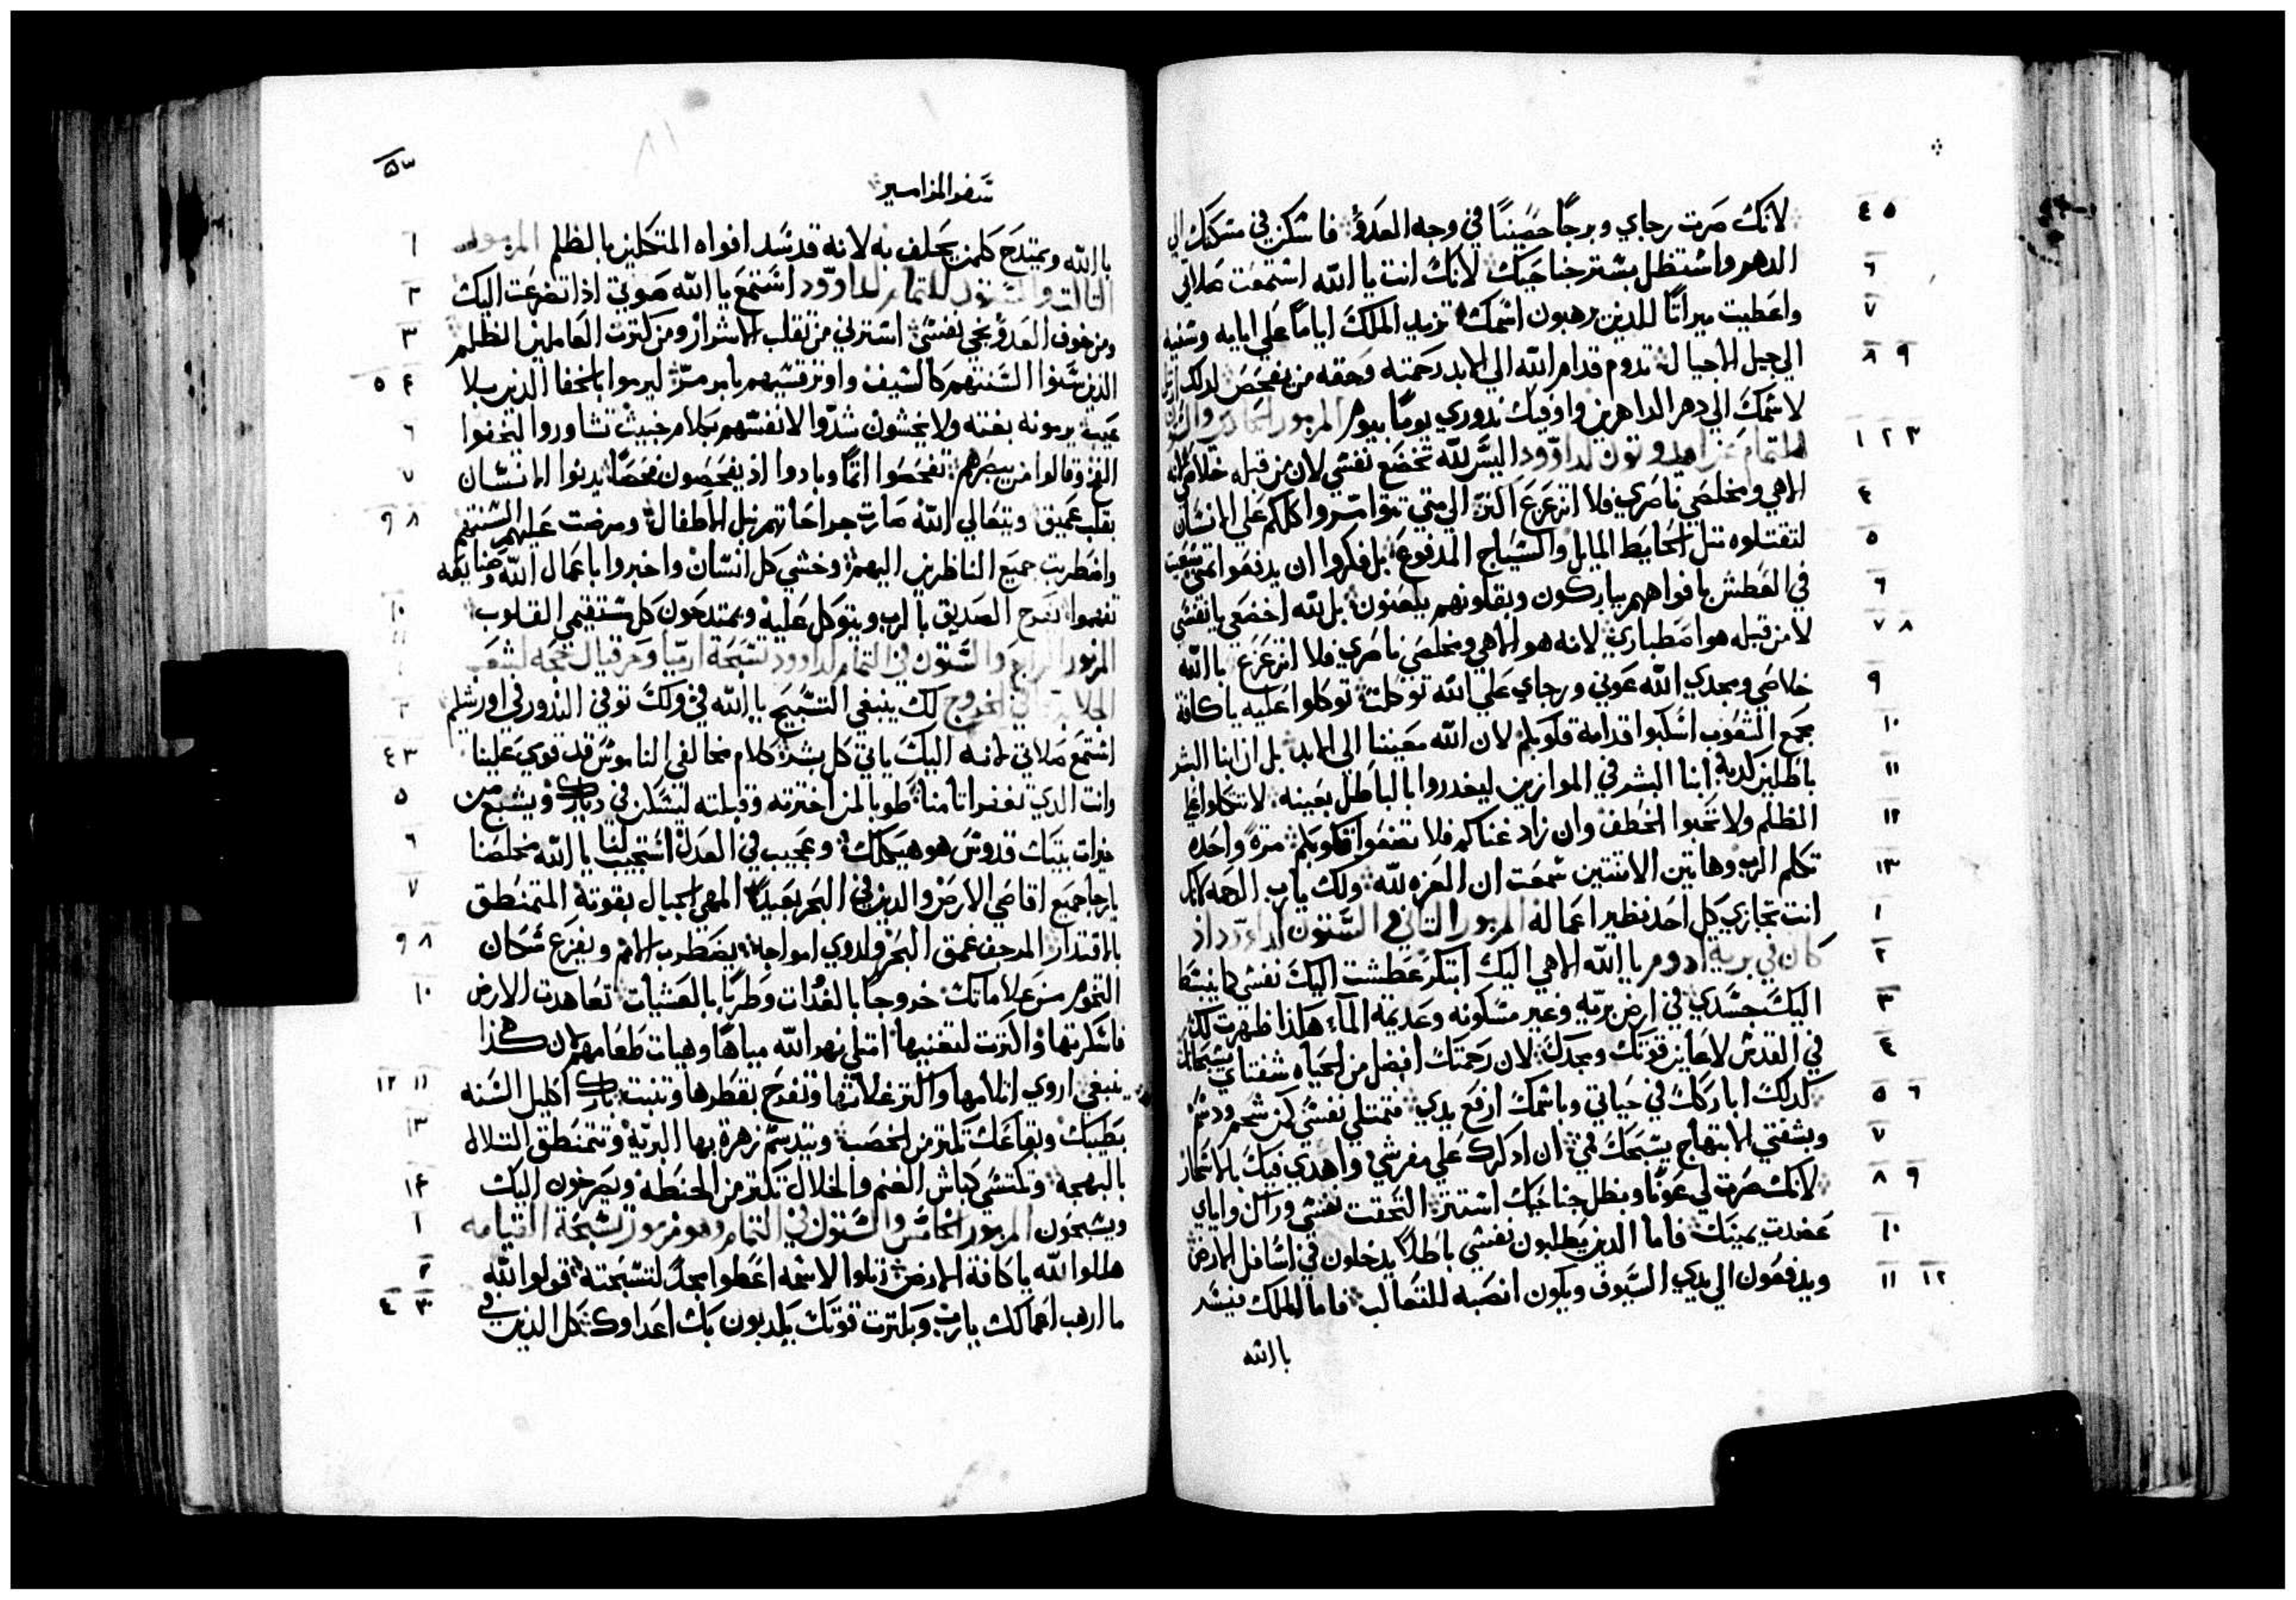 لانك صرت رجاي وبرجًا حصينًا في وجه العدو فاسكن في مسكنك الي
الدهر واستظل بستر جناحيك لانك انت يا الله استمعت صلاتي
واعطيت ميراثًا للدين يرهبون اسمك تزيد الملك ايامًا علي ايامه وسنيه
الي جيل الاجيال تدوم قدام الله الي الابد رحمته وحقه من يفحص لدلك ارتل
لاسمك الي دهر الداهرين واوفيك ندوري يومًا بيوم المزمور الحادي والستون
للتمام عن ايدوتون لداوود اليس لله تخضع نفسي لان من قبله خلاصي لانه
الاهي ومخلصي ناصري فلا اتزعزع اكتر الي متي تتوامروا كلكم علي الانسان
لتقتلوه متل الحايط المايل والسياج المدفوع بل فكروا ان يدفعوا تمني سعيت
في العطش بافواههم يباركون وبقلوبهم يلعنون بل لله اخضعي يا نفسي
لان من قبله هو اصطباري لانه هو الاهي ومخلصي ناصري فلا اتزعزع بالله
خلاصي ومجدي الله عوني ورجاي علي الله توكلت توكلوا عليه يا كافة
جمع الشعوب اسكبوا قدامه قلوبكم لان الله معيننا الي الابد بل ان ابنا البشر
باطلين كدبة ابنا البشر في الموازين ليغدروا بالباطل بعينه لا تتكلوا علي
الظلم ولا تحبوا الخطف وان زاد غناكم فلا تضعوا قلوبكم مرة واحده
تكلم الرب وهاتين الاتنتين سمعت ان العزه لله ولك يا رب الرحمه لانك
انت تجازي كل احد نظير اعماله المزمور التاني والستون لداوود اذ
كان في برية ادوم يا الله الاهي اليك ابتكر عطشت اليك نفسي لكيما ينشا
اليك جسدي في ارض بريه وغير مسكونه وعديمه الماء هكذا ظهرت لك
في القدس لاعاين قوتك ومجدك لان رحمتك افضل من الحياه شفتاي يسبحانك
كدلك اباركك في حياتي وباسمك ارفع يدي فتمتلي نفسي كمن شحم ودسم
وبشفتي الابتهاج يسبحك فمي ان ادكرك علي مفرشي واهدي فيك بالاسحار
لانك صرت لي عونًا وبظل جناحيك استتر التحقت نفسي وراك واياي
عضدت يمينك فاما الدين يطلبون نفسي باطلا يدخلون في اسافل الارض
ويدفعون الي يدي السيوف ويكون انصبه للتعالب فاما الملك فيسر
بالله
سفر المزامير
٥٣
بالله ويمتدح كلمن يحلف به لانه قد سد افواه المتكلمين بالظلم المزمور
التالت والستون للتمام لداوود استمع يا الله صوتي اذا تضرعت اليك
ومن خوف العدو نجي نفسي استرني من تقلب الاشرار ومن كترت العاملين الظلم
الدين سنوا السنتهم كالسيف واوتر قسيهم بامر مر ليرموا بالخفا الدين بلا
عيب يرمونه بغته ولا يخشون شدوا لانفسهم كلام خبيت تشاوروا ليخفوا
الفخ وقالوا من يبصرهم تفحصوا اتمًا وبادوا اذ يفحصون فحصًا يدنوا الانسان
بقلب عميق ويتعالي الله صارت جراحاتهم نبل الاطفال ومرضت عليهم السنتهم
واضطربت جميع الناظرين اليهم وخشي كل انسان واخبروا باعمال الله وصنايعه
تفهموا يفرح الصديق بالرب ويتوكل عليه ويمتدحون كل مستقيمي القلوب
المزمور الرابع والستون في التمام لداوود تسبحة ارميا وحزقيال لشعب
الجلا في الخروج لك ينبغي التسبيح يا الله في ولك توفي الندور في اورشليم
استمع صلاتي لانه اليك ياتي كل بشر كلام مخالفي الناموس قد قوي علينا
وانت الدي تغفر اتامنا طوبا لمن اخترته وقبلته ليسكن في ديارك ويشبع من
خيرات بيتك قدوس هو هيكلك وعجيب في العدل استجيب لنا يا الله مخلصنا
يا رجا جميع اقاصي الارض والدين في البحر بعيدًا المهيي الجبال بقوته المتمنطق
بالاقتدار المرجف عمق البحر ولدوي امواجه يضطرب الامم ويفزع سكان
التخوم من علاماتك خروجًا بالغدات وطربًا بالعشيات تعاهدت الارض
فاسكرتها واكترت لتغنيها امتلي نهر الله مياهًا وهيات طعامهم لان هكذا
ينبغي اروي اتلامها واكتر غلاتها وتفرح بقطرها وتنبت بارك اكليل السنه
بطيبك وبقاعك تمتز من الخصب ويتدسم زهرة بها البريه وتتمنطق التلال
بالبهجه وتكتسي كباش الغنم والخلال تكتر من الحنطه ويصرخون اليك
ويسبحون المزمور الخامس والستون في التمام وهو مزمور تسبحة القيامه
هللوا لله يا كافة الارض رتلوا لاسمه اعطوا مجدًا لتسبحته قولوا لله
ما ارهب اعمالك يا رب وبكترت قوتك يكدبون بك اعداوك كل الدين في